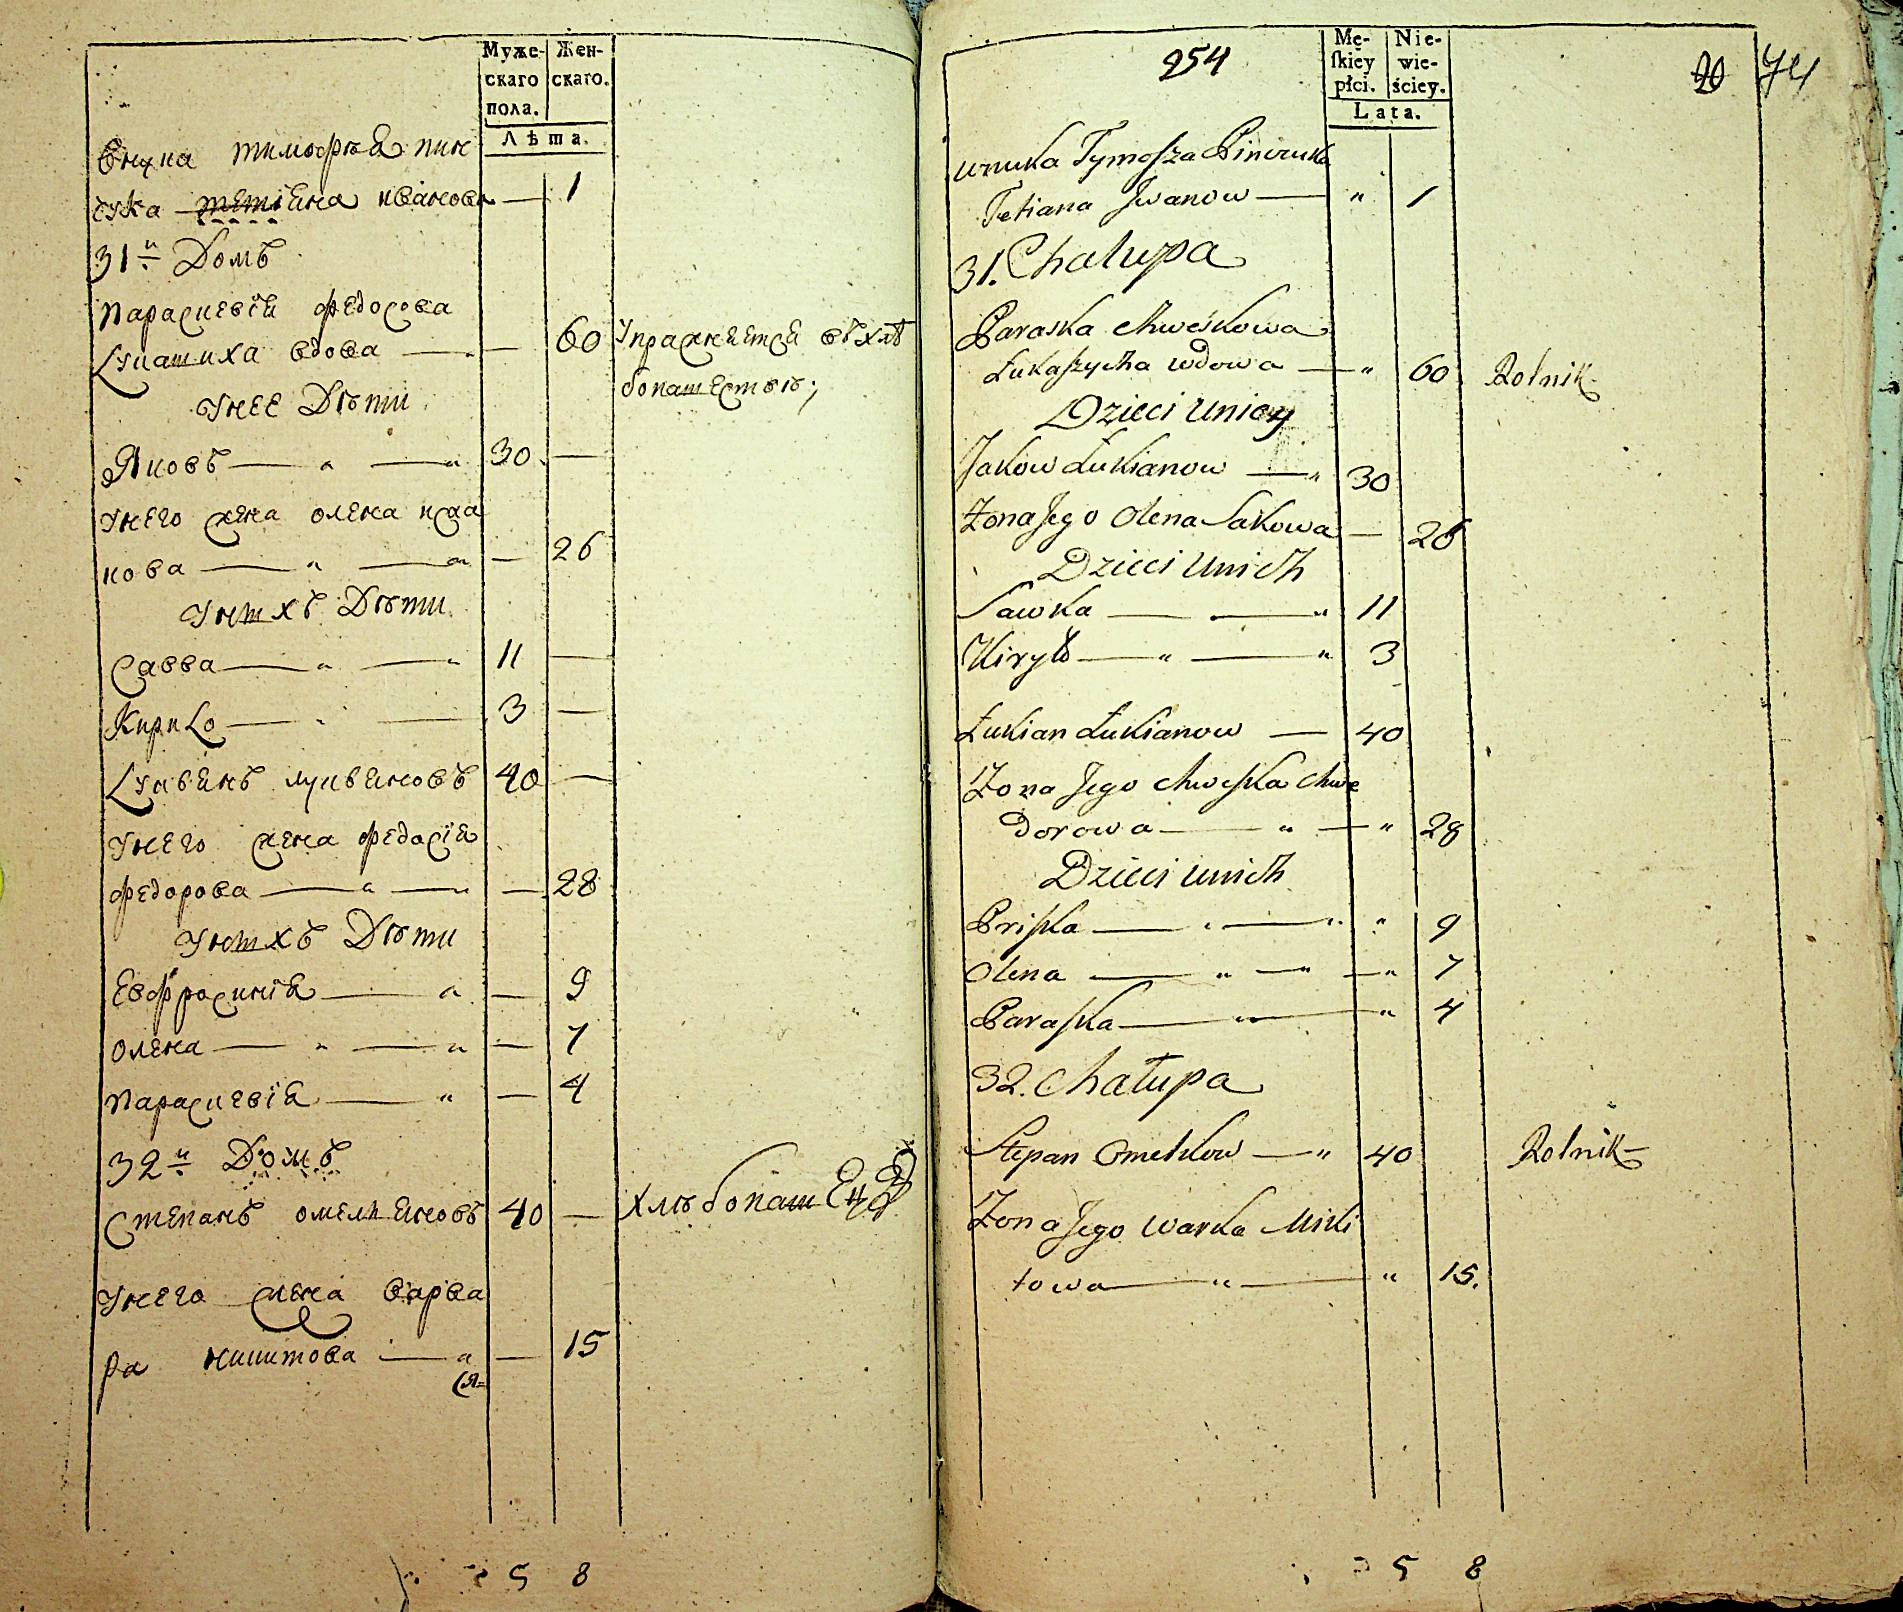 Муже-
скаго
пола.
Жен-
скаго.
Лѣта.
Внука тимофѣя пин
чука тетіяна иванова — 1
31й Домъ
параскевія федосова
Лукашиха вдова — — 60 Упражняется въ хлѣ
бопашествѣ;
У нее Дѣти
Яковъ — „ — „ 30 —
У него жена олена исаа
кова — „ — „ — 26
У нихъ Дѣти
Савва — „ — „ 11 —
Кирило — „ — 3 —
Лукьянъ лукьяновъ 40 —
У него жена федосія
федорова — „ — „ — 28
У нихъ Дѣти
Евфросинія — „ — 9
олена — „ — „ — 7
параскевія — „ — 4
32й Домъ
Степанъ омельяновъ 40 — хлѣбопашецъ
У него жена варва
ра никитова — „ — 15
(я=
5 8
254
Mę-
ſkiey
płci.
Nie-
wie-
ściey.
Lata.
20 74
wnuka Tymosza Pinczuka
Tetiana Jwanow — „ 1
31. Chałupa
Paraska Chweskowa
Łukaszycha wdowa — „ 60 Rolnik
Dzieci u niey
Jakow Łukianow — „ 30
Żona Jego Olena Sakowa — 26
Dzieci u nich
Sawka — — „ 11
Kiryło — „ — „ 3
Łukian Łukianow — 40
Żona Jego Chweska Chwe
dorowa — „ — „ 28
Dzieci u nich
Priska — „ — „ „ 9
Olena — „ — „ — „ 7
Paraska — „ — „ 4
32. Chałupa
Stepan Omelkow — „ 40 Rolnik
Żona Jego Warka Miki
towa — „ — „ 15.
5 8